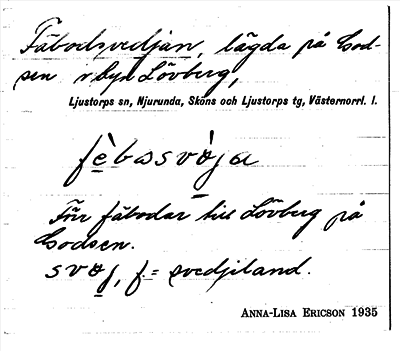 Fäbodsvedjan, lägda på God-
sen v byn Lövberg,
Ljustorps sn, Njurunda, Sköns och Ljustorps tg, Västernorrl. l.
fèbɷsvø̀ja
Förr fäbodar till Lövberg på
Godsen.
svøj, f. = svedjeland.
ANNA-LISA ERICSON 1935